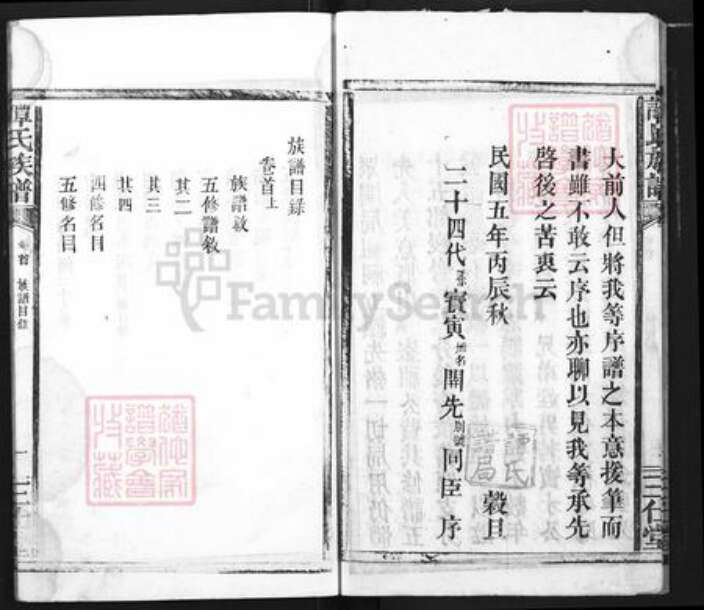 大前人但將我等序譜之本意援筆而
書雖不敢云序也亦聊以見我等承先
啓後之苦衷云
民國五年丙辰秋 穀旦
二十四代 寅 開先 別號 同臣 序
譚氏
族譜目錄
卷首上
族譜敘
五修譜敘
其二
其三
其四
四修名目
五修名目
譚氏族譜
卷首 族譜目錄
一
FamilySearch